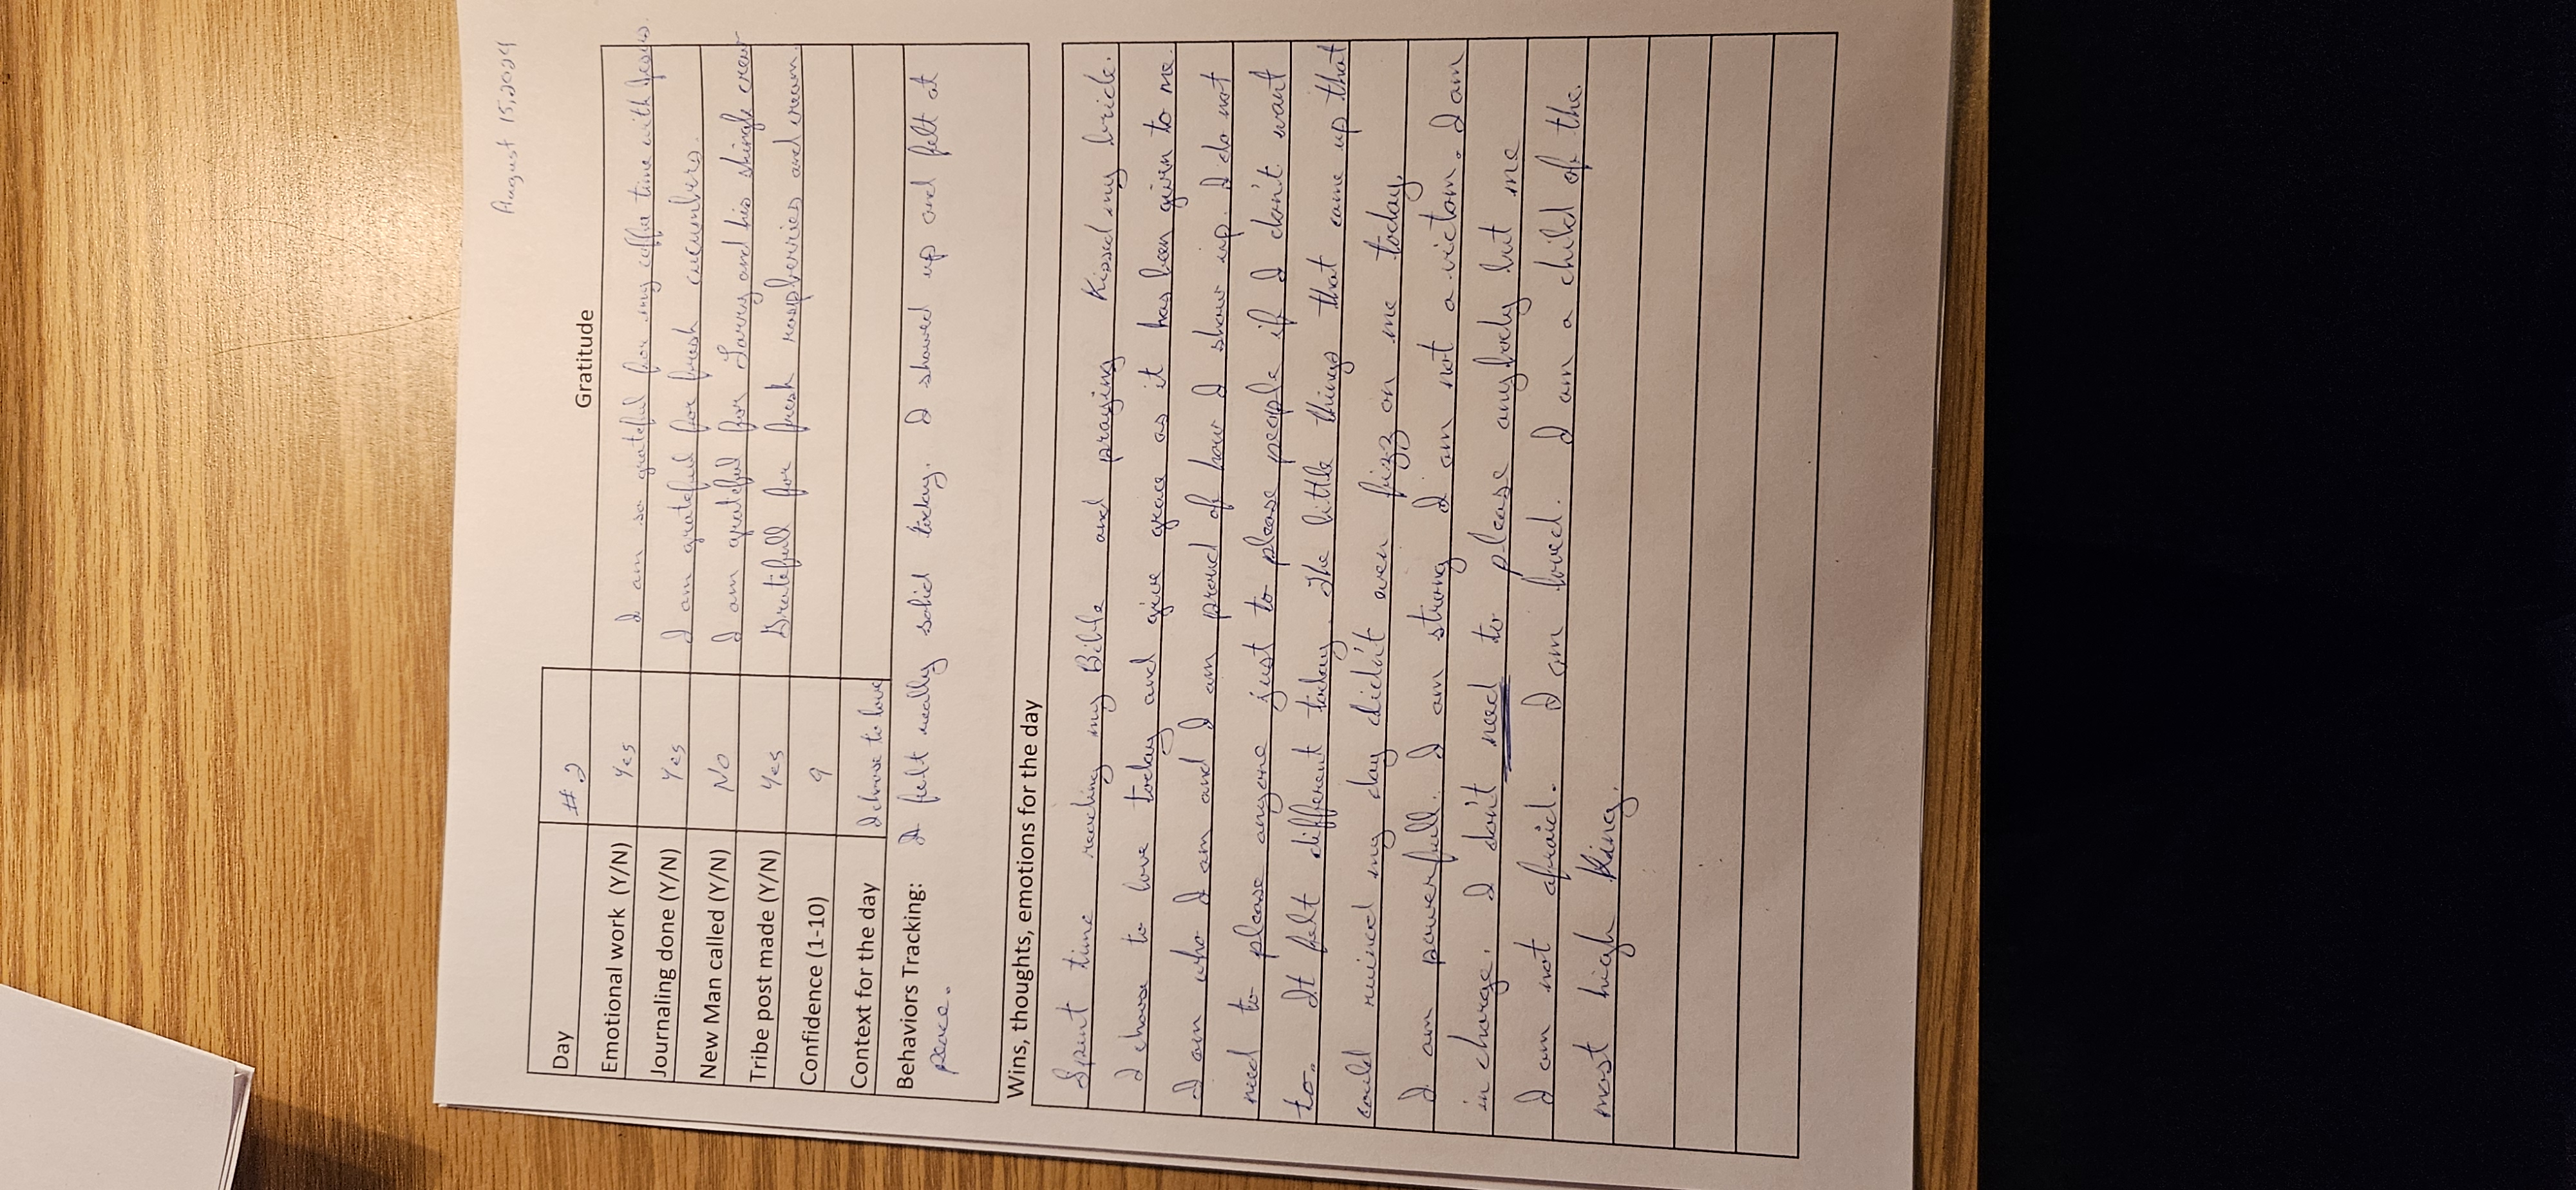 August 15, 2024
Day #2 Gratitude
Emotional work (Y/N) Yes I am so grateful for my coffee time with Jesus.
Journaling done (Y/N) Yes I am grateful for fresh cucumbers.
New Man called (Y/N) No I am grateful for Larry and his shingle crew
Tribe post made (Y/N) Yes Gratefull for fresh raspberries and cream.
Confidence (1-10) 9
Context for the day I choose to love
Behaviors Tracking: I felt really solid today. I showed up and felt at
peace.
Wins, thoughts, emotions for the day
Spent time reading my Bible and praying Kissed my bride.
I choose to love today and give grace as it has been given to me.
I am who I am and I am proud of how I show up. I do not
need to please anyone just to please people if I don't want
to. It felt different today. The little things that came up that
could ruined my day didn't even fizz on me today.
I am powerfull. I am strong I am not a victom. I am
in charge. I don't need to please anybody but me
I am not afraid. I am loved. I am a child of the.
most high King.